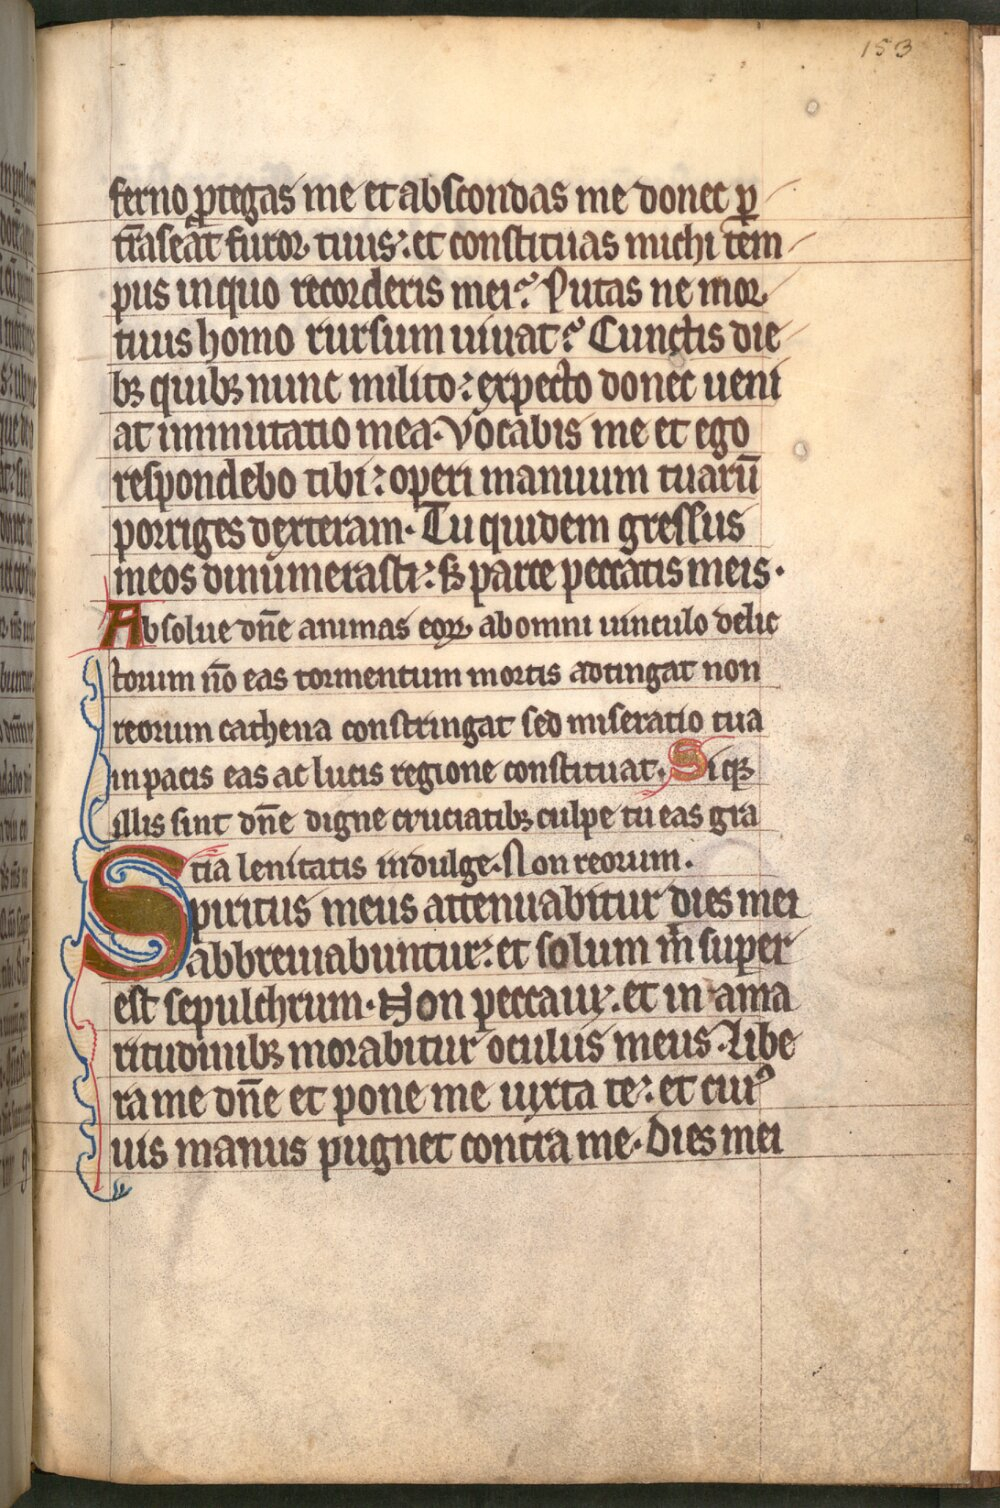 153
ferno ꝓtegas me et abscondas me donec ꝑ
trãseat furor tuus: et constituas michi tem
pus in quo recorderis mei? Putas ne mor
tuus homo rursum uiuat? Cunctis die
bꝫ quibꝫ nunc milito: expecto donec ueni
at inmutatio mea. Vocabis me et ego
respondebo tibi: operi manuum tuarū
porriges dexteram. Tu quidem gressus
meos dinumerasti: sꝫ parce peccatis meis.
Absolue dn̄e animas eoꝝ ab omni uinculo delic
torum nō eas tormentum mortis adtingat non
reorum cathena constringat sed miseratio tua
in pacis eas ac lucis regione constituat. Siqꝫ
illis sint dn̄e digne cruciatibꝫ culpe tu eas gra
tia lenitatis indulge. Non reorum.
Spiritus meus attenuabitur dies mei
abbreuiabuntur: et solum m̄ super
est sepulchrum. Non peccaui: et in ama
ritudinibꝫ morabitur oculus meus. Libe
ra me dn̄e et pone me iuxta te: et cuiꝰ
uis manus pugnet contra me. Dies mei